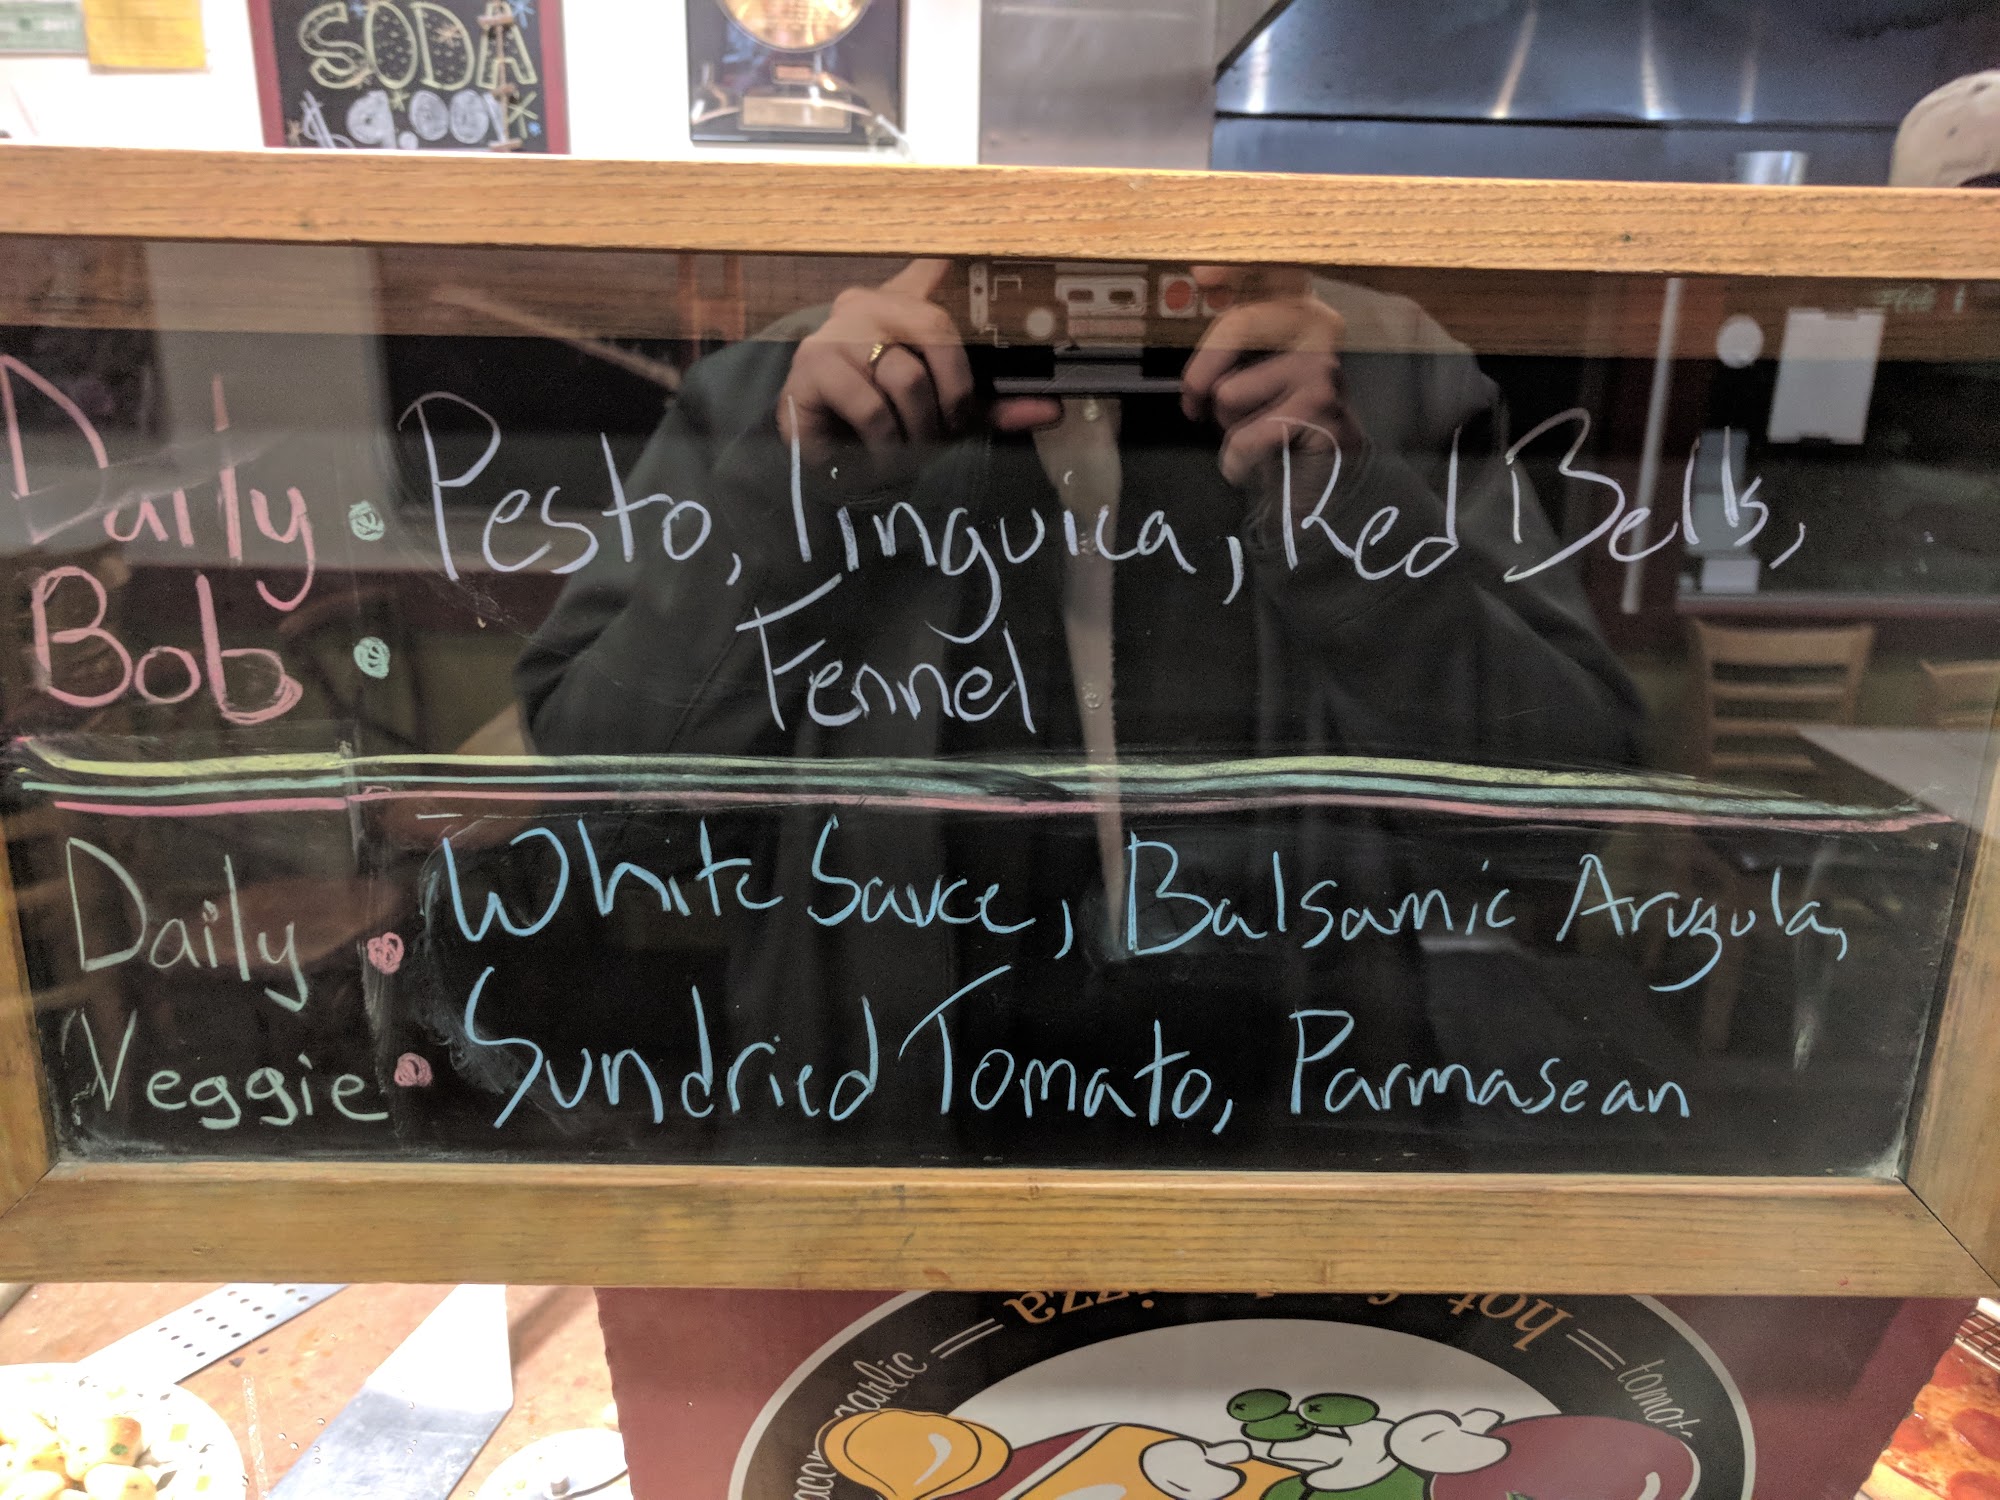 SODA
$9.00
Daily : Pesto, linguica, Red Bells,
Bob Fennel
Daily : White Sauce, Balsamic Arugula,
Veggie Sundried Tomato, Parmasean
hot
garlic